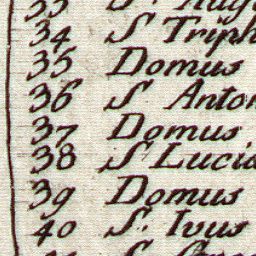 33 S.
34 S Triph
35 Domus
36 S Anton
37 Domus
38 S Lucia
39 Domus
40 S. Ivus